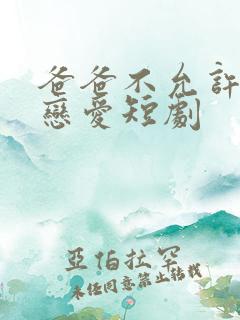 爸爸不允許
戀愛短劇
亞怕拉罕
未經同意禁止轉載